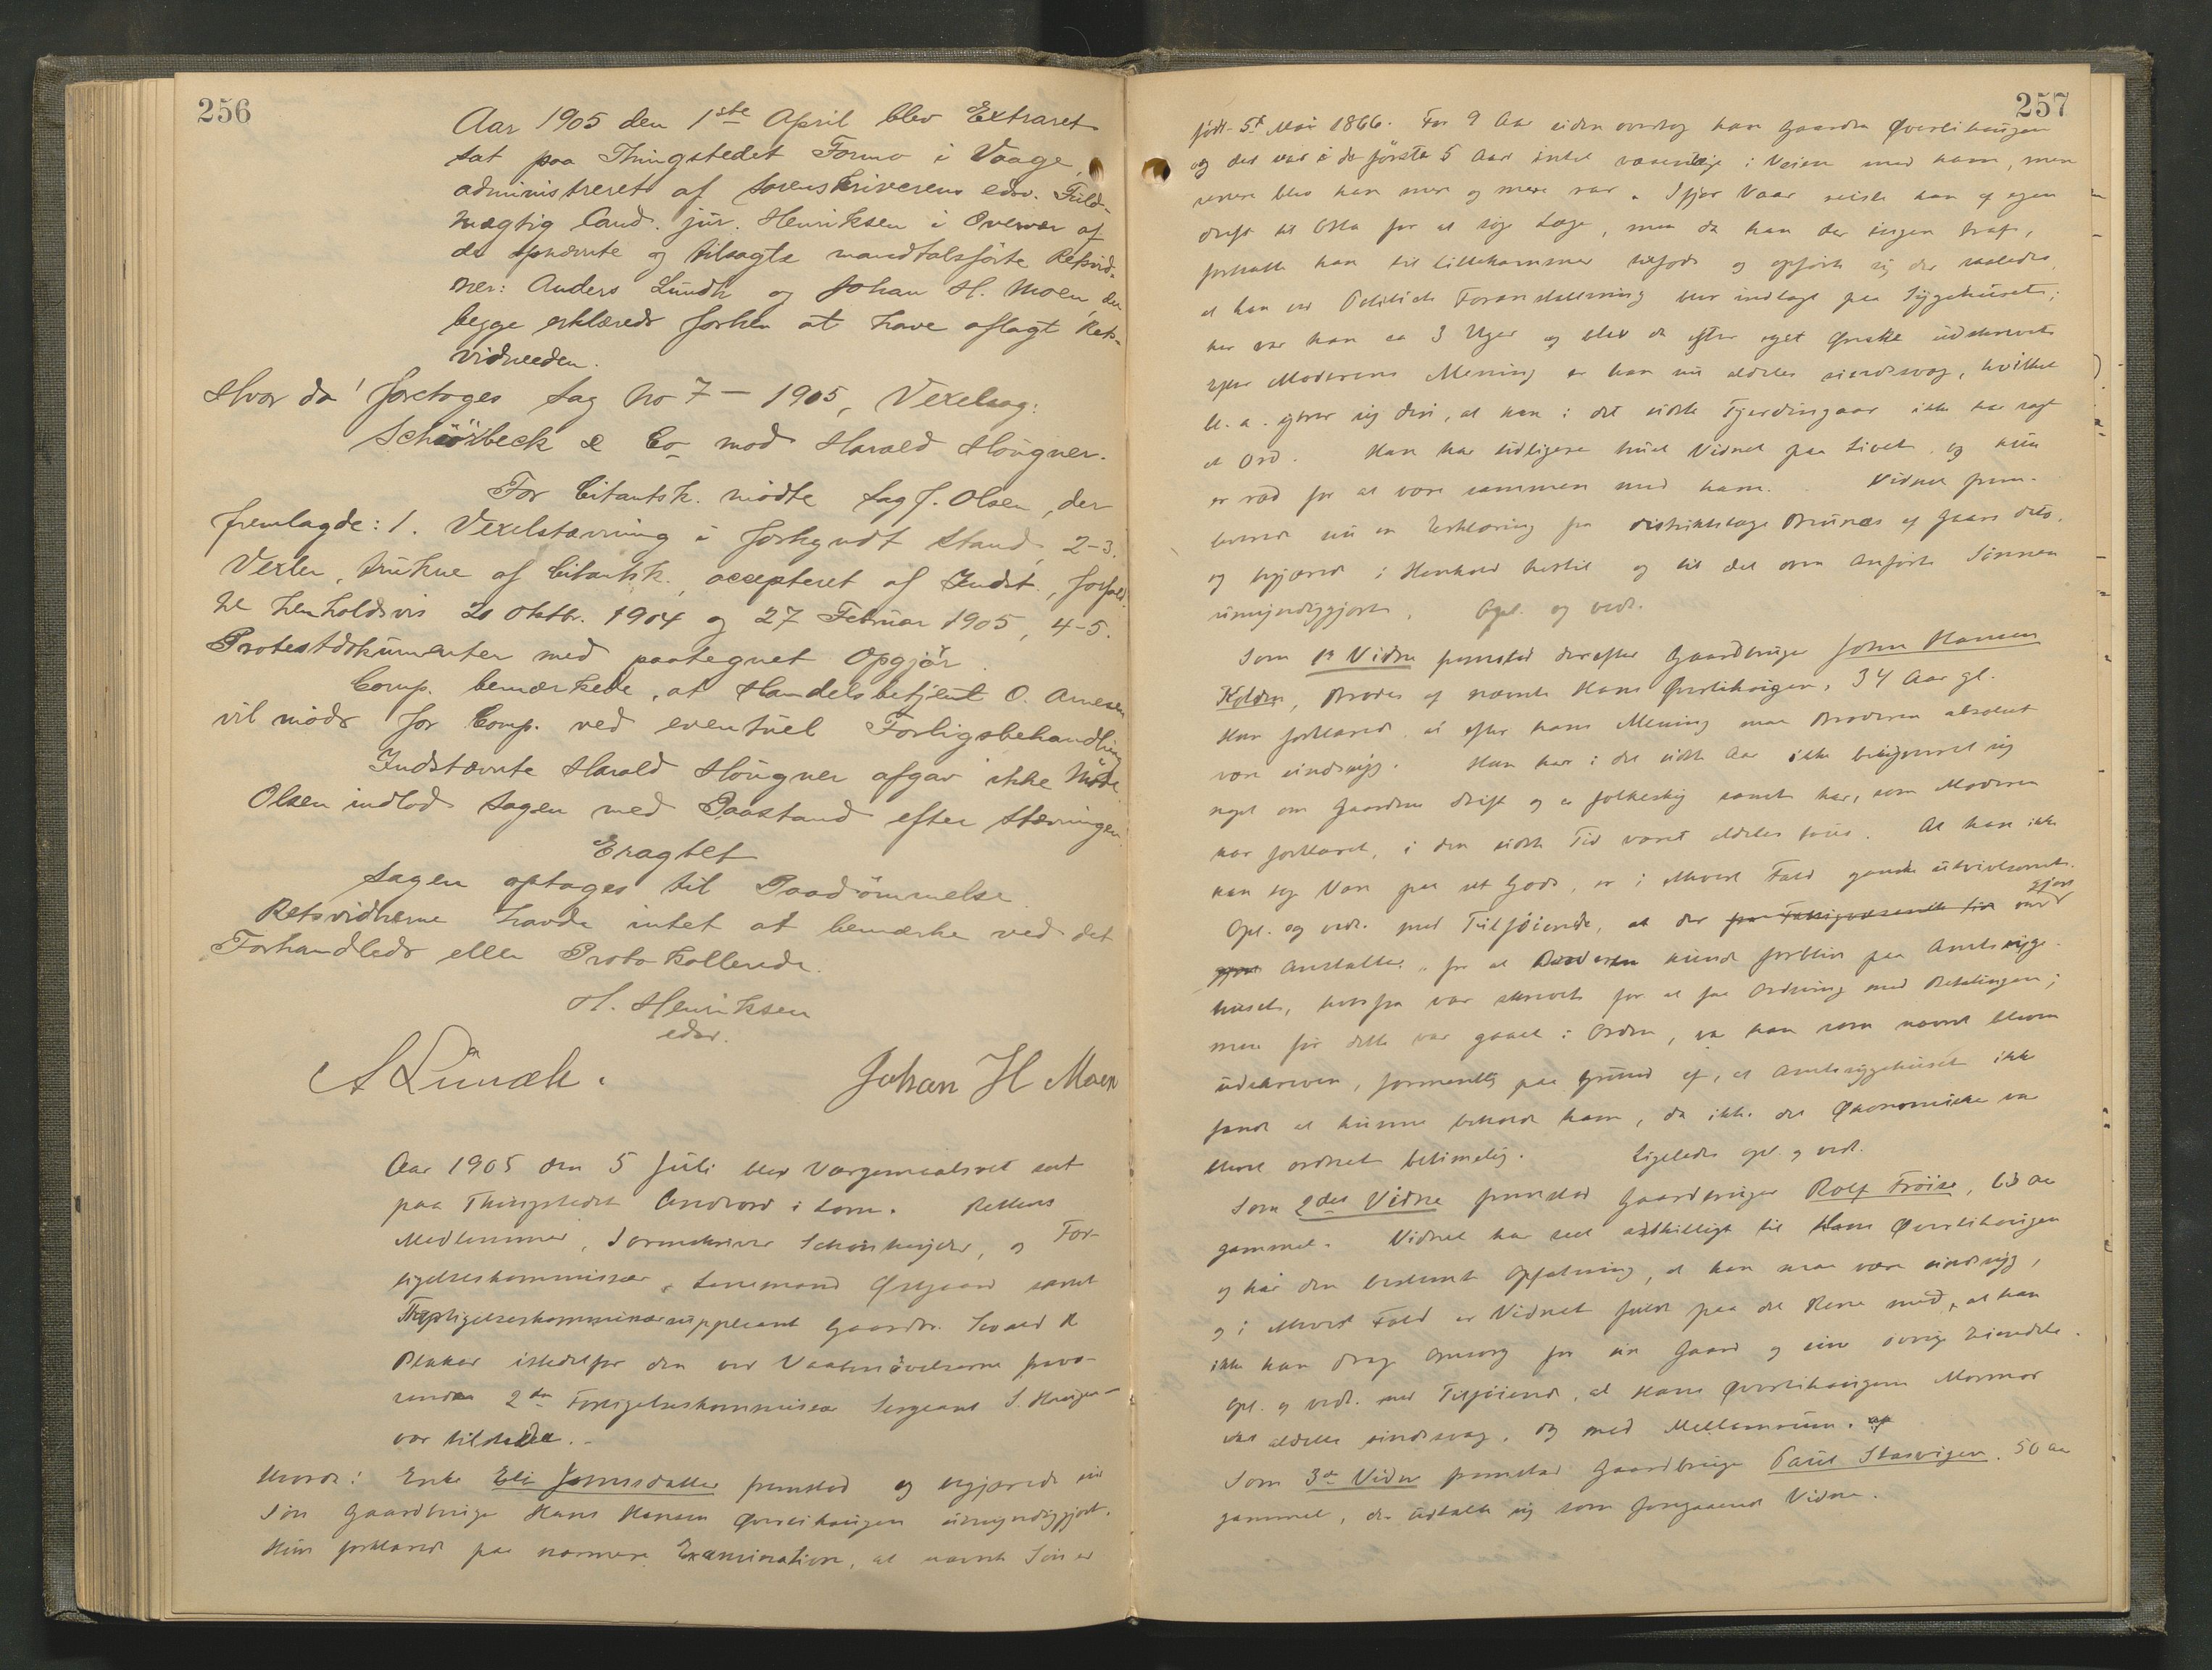 256
Aar 1905 den 1ste April blev Extraret
sat paa Thingstedet Formo i Vaage,
administreret af Sorenskriverens edsv. Fuld-
mægtig Cand. jur. Henriksen i Overvær af
de opnævnte og tilsagte mandtalsførte Retsvid-
ner: Anders Lundh og Johan H. Moen, der
begge erklærede forhen at have aflagt Rets-
vidneeden.
Hvor da! foretoges Sag No 7 – 1905, Vexelsag:
Schiörbeck & Co mod Harald Hougner.
For Citantsk. mødte Sagf. Olsen, der
fremlagde: 1. Vexelstævning i forkyndt Stand, 2-3.
Vexler, trukne af Citantsk., accepteret af Indst., forfald.
ne henholdsvis 20 Oktbr. 1904 og 27 Februar 1905, 4-5.
Protestdokumenter med paategnet Opgjør.
Comp. bemærkede, at Handelsbetjent O. Arnesen
vil møde for Comp. ved eventuel Forligsbehandling
Indstævnte Harald Hougner afgav ikke Møde.
Olsen indlod Sagen med Paastand efter Stævningen.
Eragtet
Sagen optages til Paadømmelse.
Retsvidnerne havde intet at bemærke ved det
Forhandlede eller Protokollerede.
H. Henriksen
edsv.
A Lundh. Johan H Moen
Aar 1905 den 5 Juli blevVærgemaalsret sat
paa Thingstedet Andvord i Lom. Rettens
Medlemmer, Sorenskriver Schönheyder, og For-
ligelseskommissær, Lensmand Øygaard samt
Forligelseskommissærsuppleant Gaardbr. Sevald R
istedetfor den ved Vaabenøvelserne fravæ-
rende 2den Forligelseskommissær Sergeant S. Haugen
var tilstede.-
Hvorda! Enke Eli Johnsdatter fremstod og begjærede sin
Søn Gaardbruger Hans Hansen Øverlihaugen umyndiggjort.
Hun forklarede paa nærmere Examination, at nævnte Søn er
257
født 5t Mai 1866. For 9 Aar siden overtog han Gaarden Øverlihaugen
og det var i de første 5 Aar intet væsentlige i Veien med ham, men
senere blev han mere og mere rar. Ifjor Vaar reiste han af egen
drift til Otta for at søge Læge, men da han der ingen traf,
fortsatte han til Lillehammer tilfods og opførte sig der saaledes
at han ved Politiets Foranstaltning blev indlagt paa Sygehuset;
her var han ca 3 Uger og blev da efter eget Ønske udskrevet.
Efter Moderens Mening er han nu aldeles sindssvag, hvilket
bl. a. ytrer sig deri, at han i det sidste Fjerdingaar ikke har sagt
et Ord. Han har tidligere truet Vidnet paa Livet og hun
er ræd for at være sammen med ham. Vidnet frem-
lagde nu en Erklæring fra Distriktslæge Brunæs af Gaars Dato,
og begjærede i Henhold hertil og til det oven Anførte Sønnen
umyndiggjort. Opl. og vedt.
Som 1ste Vidne fremstod derefter Gaardbruger John Hansen
Kolden, Broder af nævnte Hans Øverlihaugen, 34 Aar gl.
Han forklarede, at efter hans Mening maa Broderen absolut
være sindssyg. Han har i det sidste Aar ikke bekymret sig
noget om Gaardens Drift og er folkesky samt har, som Moderen
har forklaret, i den sidste Tid været aldeles taus. At han ikke
kan tage Vare paa sit Gods, er i ethvert Fald ganske utvivlsomt.
Opl. og vedt. med Tilføiende, at der fra Fattigvæsenets Side var gjort
gjort Anstalter for at Broderen kunde forblive paa Amtssyge-
huset, hvorfra var skrevet for at faa Ordning med Betalingen;
men før dette var gaaet i Orden, var han som nævnt bleven
udskreven, formentlig paa Grund af, at Amtssygehuset ikke
fandt at kunne beholde ham, da ikke det Økonomiske var
blevet ordnet betimelig. Ligeledes opl. og vedt.
Som 2det Vidne fremstod Gaardbruger Rolf Frøise, 63 Aar
gammel. Vidnet har seet adskilligt til Hans Øverlihaugen
og har den bestemte Opfatning, at han maa være sindssyg,
og i ethvert Fald er Vidnet fuldt paa det Rene med, at han
ikke kan drage Omsorg for sin Gaard og sine øvrige Eiendele.
Opl. og vedt. med Tilføiende, at Hans Øverlihaugens Mormor
var aldeles sindssvag, dog med Mellemrum.
Som 3de Vidne fremstod Gaardbruger Paul Stasvigen, 50 Aar
gammel, der udtalte sig som foregaaende Vidne.